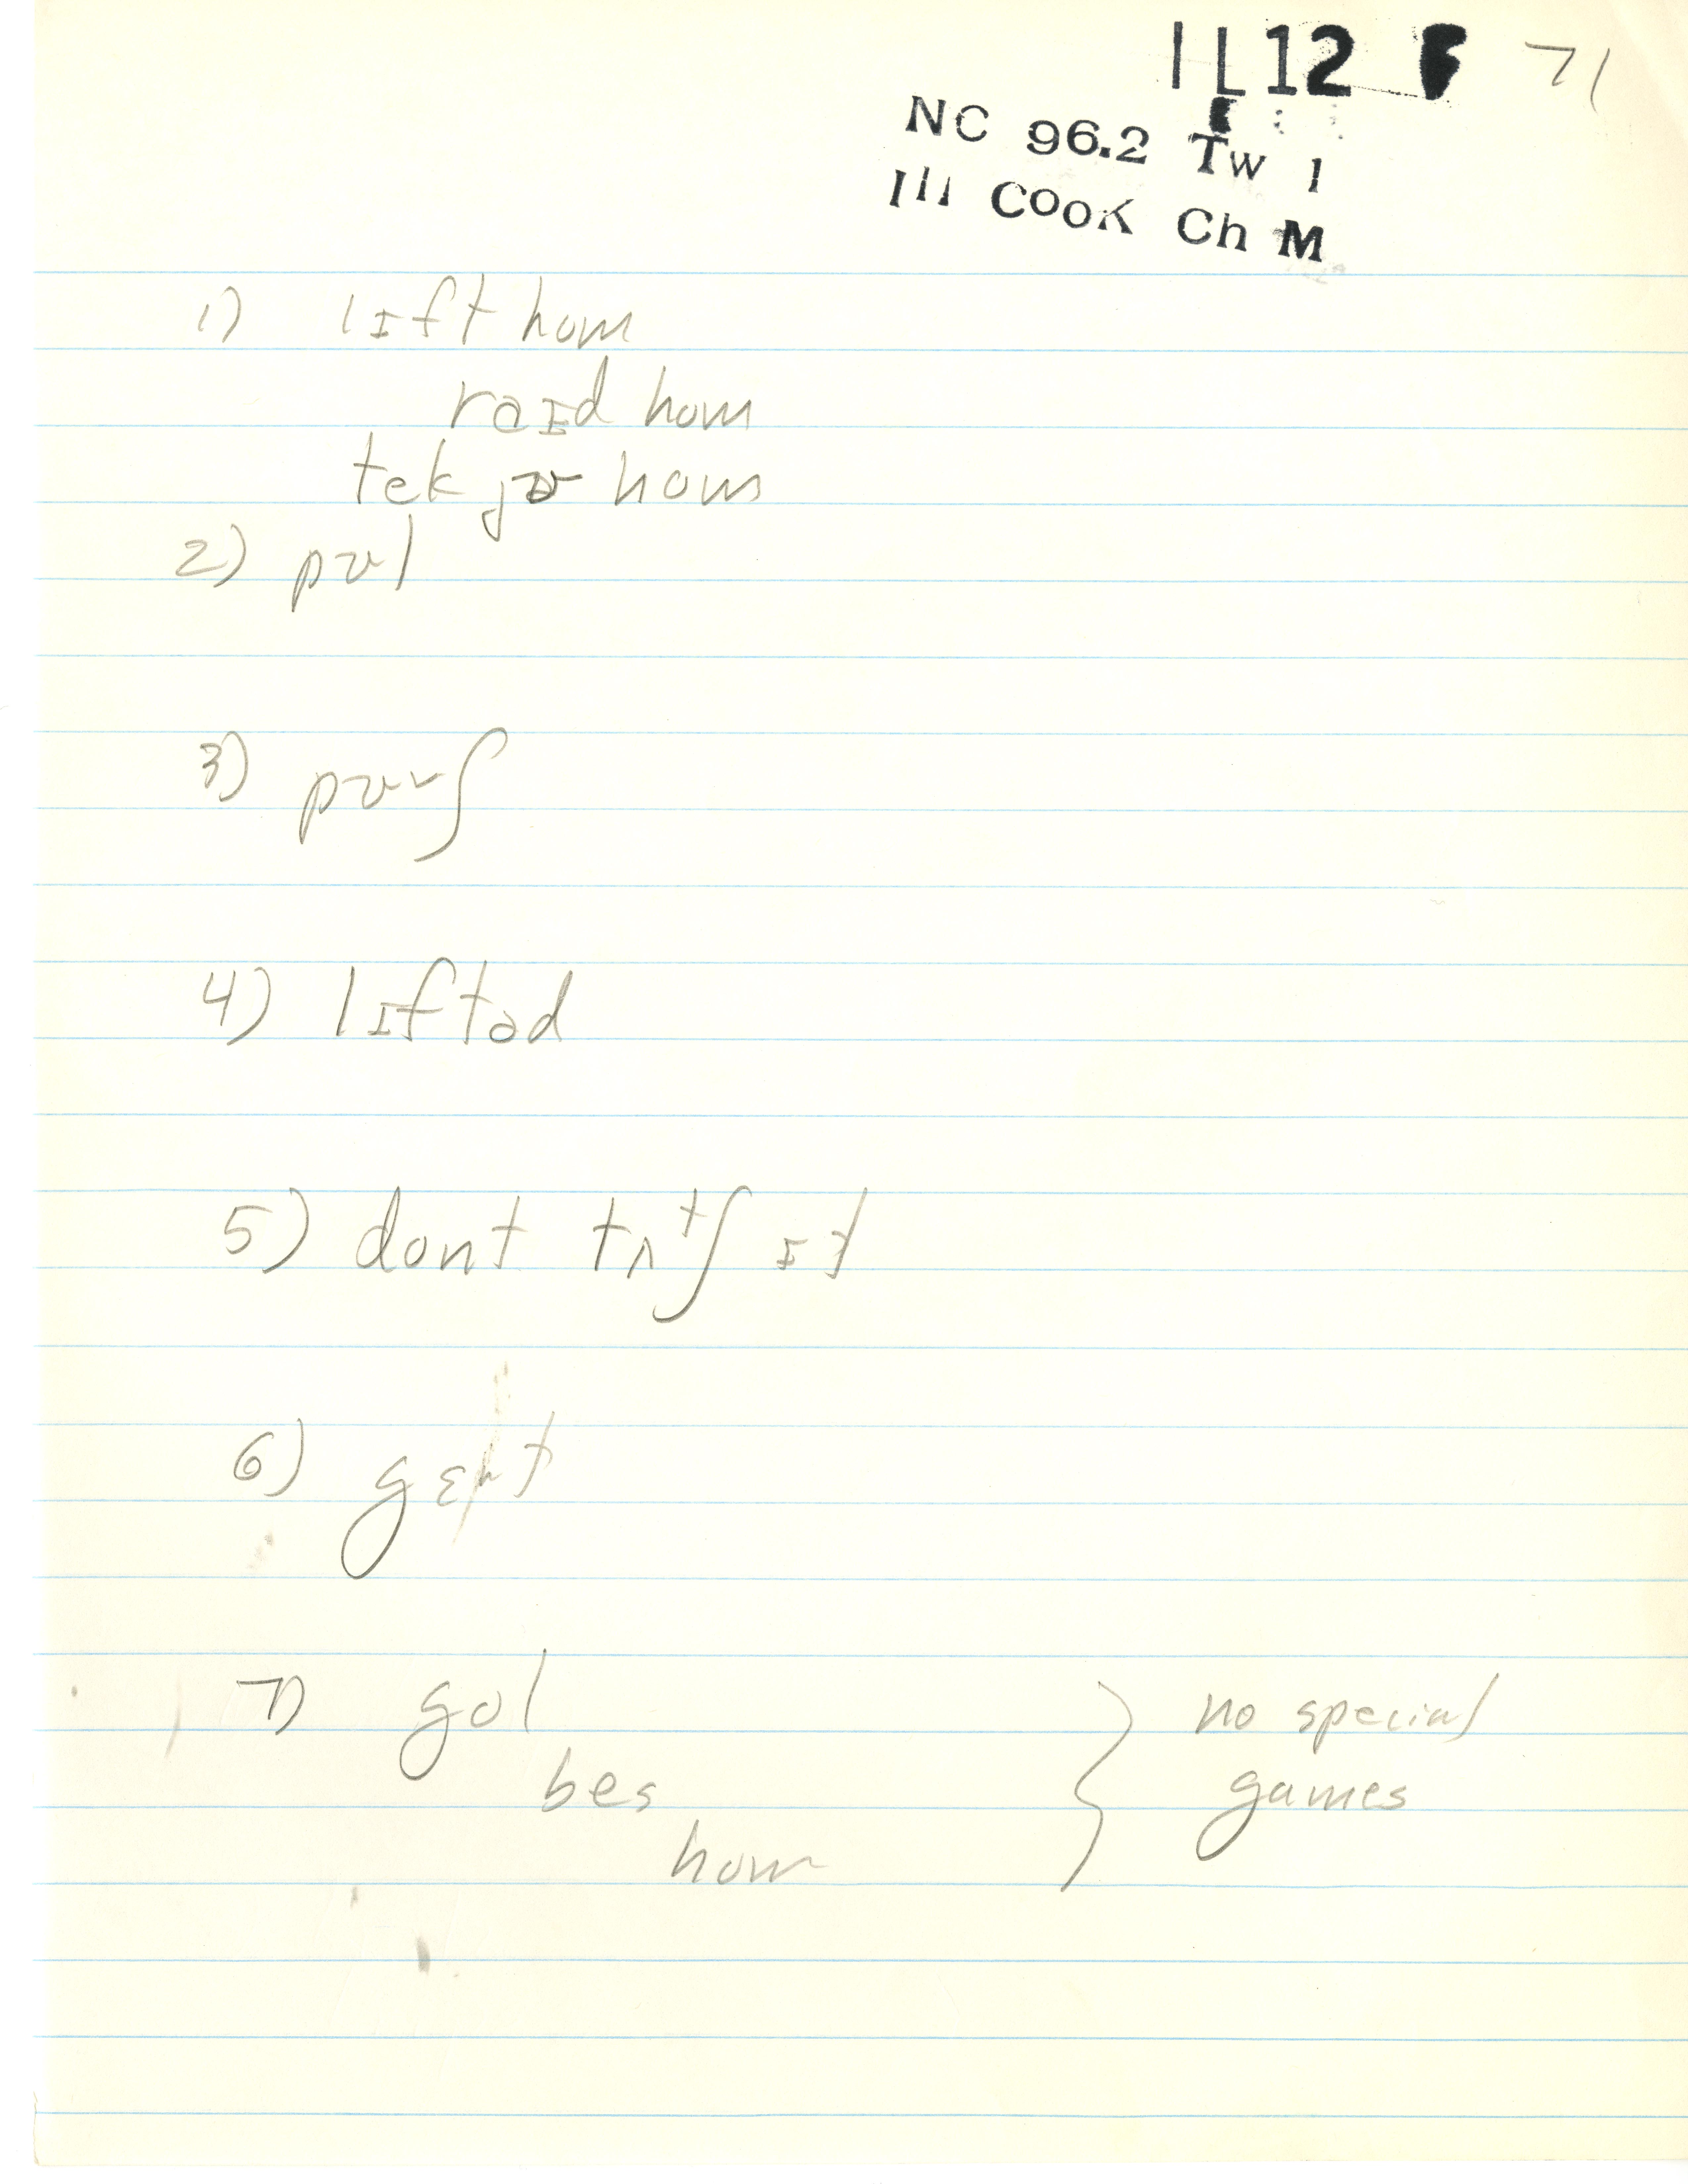 IL12 71
NC 96.2 Tw 1
Ill COOK Ch M
1) lɪft hom
raɪd hom
tek jʊ hom
2) pʊl
3) pʊʃ
4) lɪftəd
5) dont tʌtʃ ɪt
6) gɛt
7) gol
bes
hom
no special
games